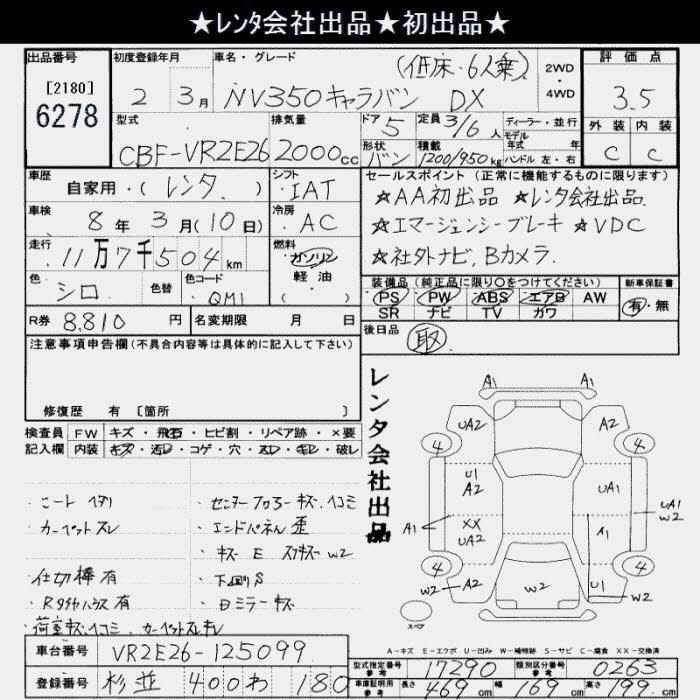 ★レンタ会社出品★初出品★
出品番号
[2180]
6278
初度登録年月
2 3月
車名・グレード
NV350キャラバン DX
(低床・6人乗)
2WD
・
4WD
評価点
3.5
外装 内装
C C
型式
CBF-VR2E26
排気量
2000cc
ドア
5
形状
バン
定員
3/6人
積載
1200/950kg
ディーラー・並行
モデル
年式 年
ハンドル 左・右
車歴
自家用・(レンタ)
シフト
IAT
車検
8年3月(10日)
冷房
AC
走行
11万7千504km
燃料
ガソリン
・
軽・油
( )
色
シロ
色替
色コード
QM1
R券 8,810 円
名変期限 月 日
セールスポイント (正常に機能するものに限ります)
★AA初出品 ★レンタ会社出品
★エマージェンシーブレーキ ★VDC
★社外ナビ,Bカメラ
装備品 (純正品に限り○をつけてください)
PS PW ABS エアB AW
SR ナビ TV カワ
新車保証書
有・無
後日品
取
注意事項申告欄 (不具合内容等は具体的に記入して下さい)
修復歴 有 [箇所 ]
検査員 FW キズ・飛石・ヒビ割・リペア跡・×要
記入欄 内装 キズ・汚レ・コゲ・穴・スレ・キレ・破レ
・シート ヘタリ
・カーペットスレ
・仕切棒有
・Rタイヤハウス有
・荷室キズ,凹コミ,カーペットスレキレ
・センターフロアーキズ・凹コミ
・エンドパネル歪
・キズ E スリキズ W2
・下回りS
・Dミラーキズ
レンタ会社出品
A1 A1
UA2 A2
4 4
U1
A2
UA1
UA1
W2
A1
XX
UA2
A1
4 4
W2 A2
W2
U1
W2
スペア
A-キズ E-エクボ U-凹み W-補修跡 S-サビ C-腐食 XX-交換済
車台番号 VR2E26-125099
登録番号 杉並 400わ 180
型式指定番号
参考
17290
類別区分番号
参考
0263
車庫証明用
参考
長さ 469cm 幅 169cm 高さ 199cm